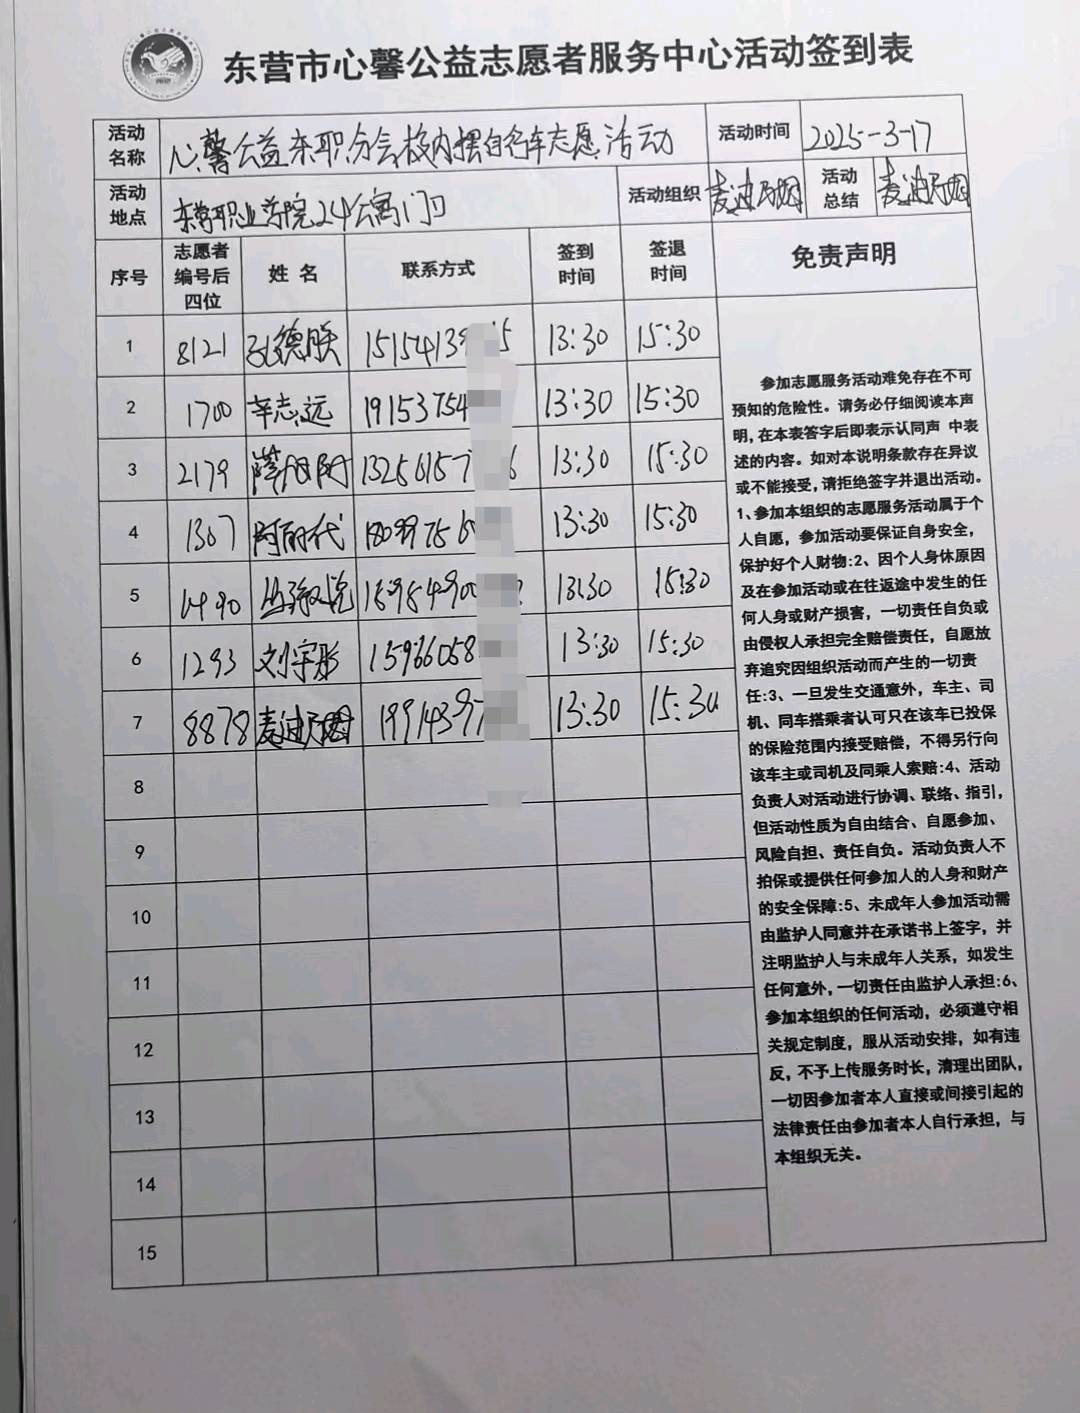 东营市心馨公益志愿者服务中心活动签到表
活动名称 心馨公益东职分会校内摆自行车志愿活动 活动时间 2025-3-17
活动地点 东营职业学院24公寓门口 活动组织 麦迪 活动总结 麦迪
序号 志愿者编号后四位 姓名 联系方式 签到时间 签退时间 免责声明
1 8121 孔德朕 15154139 5 13:30 15:30
2 1700 辛志远 19153754 13:30 15:30
3 2179 薛 13256157 6 13:30 15:30
4 1307 阿丽代 18099756 13:30 15:30
5 1490 13:30 15:30
6 1293 刘宇彤 15966058 13:30 15:30
7 8878 麦迪 19914397 13:30 15:30
8
9
10
11
12
13
14
15
参加志愿服务活动难免存在不可
预知的危险性。请务必仔细阅读本声
明,在本表答字后即表示认同声 中表
述的内容。如对本说明条款存在异议
或不能接受,请拒绝签字并退出活动。
1、参加本组织的志愿服务活动属于个
人自愿，参加活动要保证自身安全，
保护好个人财物:2、因个人身休原因
及在参加活动或在往返途中发生的任
何人身或财产损害，一切责任自负或
由侵权人承担完全赔偿责任，自愿放
弃追究因组织活动而产生的一切责
任:3、一旦发生交通意外，车主、司
机、同车搭乘者认可只在该车已投保
的保险范围内接受赔偿，不得另行向
该车主或司机及同乘人索赔:4、活动
负责人对活动进行协调、联络、指引，
但活动性质为自由结合、自愿参加、
风险自担、责任自负。活动负责人不
拍保或提供任何参加人的人身和财产
的安全保障:5、未成年人参加活动需
由监护人同意并在承诺书上签字，并
注明监护人与未成年人关系，如发生
任何意外,一切责任由监护人承担:6、
参加本组织的任何活动，必须遵守相
关规定制度，服从活动安排，如有违
反，不予上传服务时长，清理出团队，
一切因参加者本人直接或间接引起的
法律责任由参加者本人自行承担，与
本组织无关。